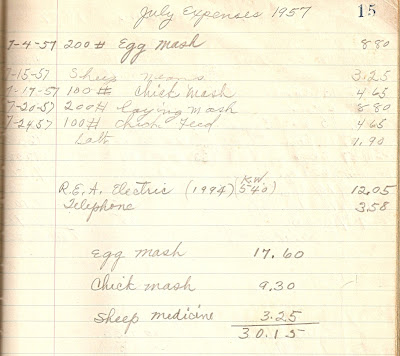 July Expenses 1957 15
7-4-57 200# Egg Mash 8.80
7-15-57 Sheep 3.25
7-17-57 100# Chick Mash 4.65
7-20-57 200# Laying Mash 8.80
7-24-57 100# Chick Feed 4.65
R.E.A. Electric (1994) (KW 540) 12.05
Telephone 3.58
Egg mash 17.60
Chick mash 9.30
Sheep medicine 3.25
30.15